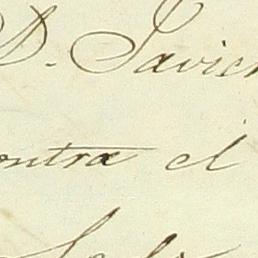 D. Javier
contra el